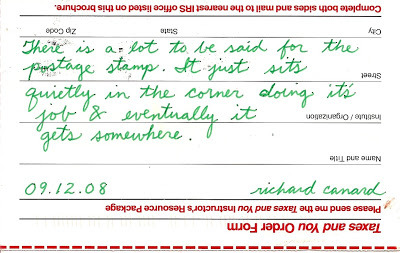 Complete both sides and mail to the nearest IRS office listed on this brochure.
City State Zip Code
There is a lot to be said for the
postage stamp. It just sits
Street
quietly in the corner doing it's
job & eventually it
Institute / Organization
gets somewhere.
Name and Title
09.12.08 richard canard
Please send me the Taxes and You Instructor's Resource Package
Taxes and You Order Form